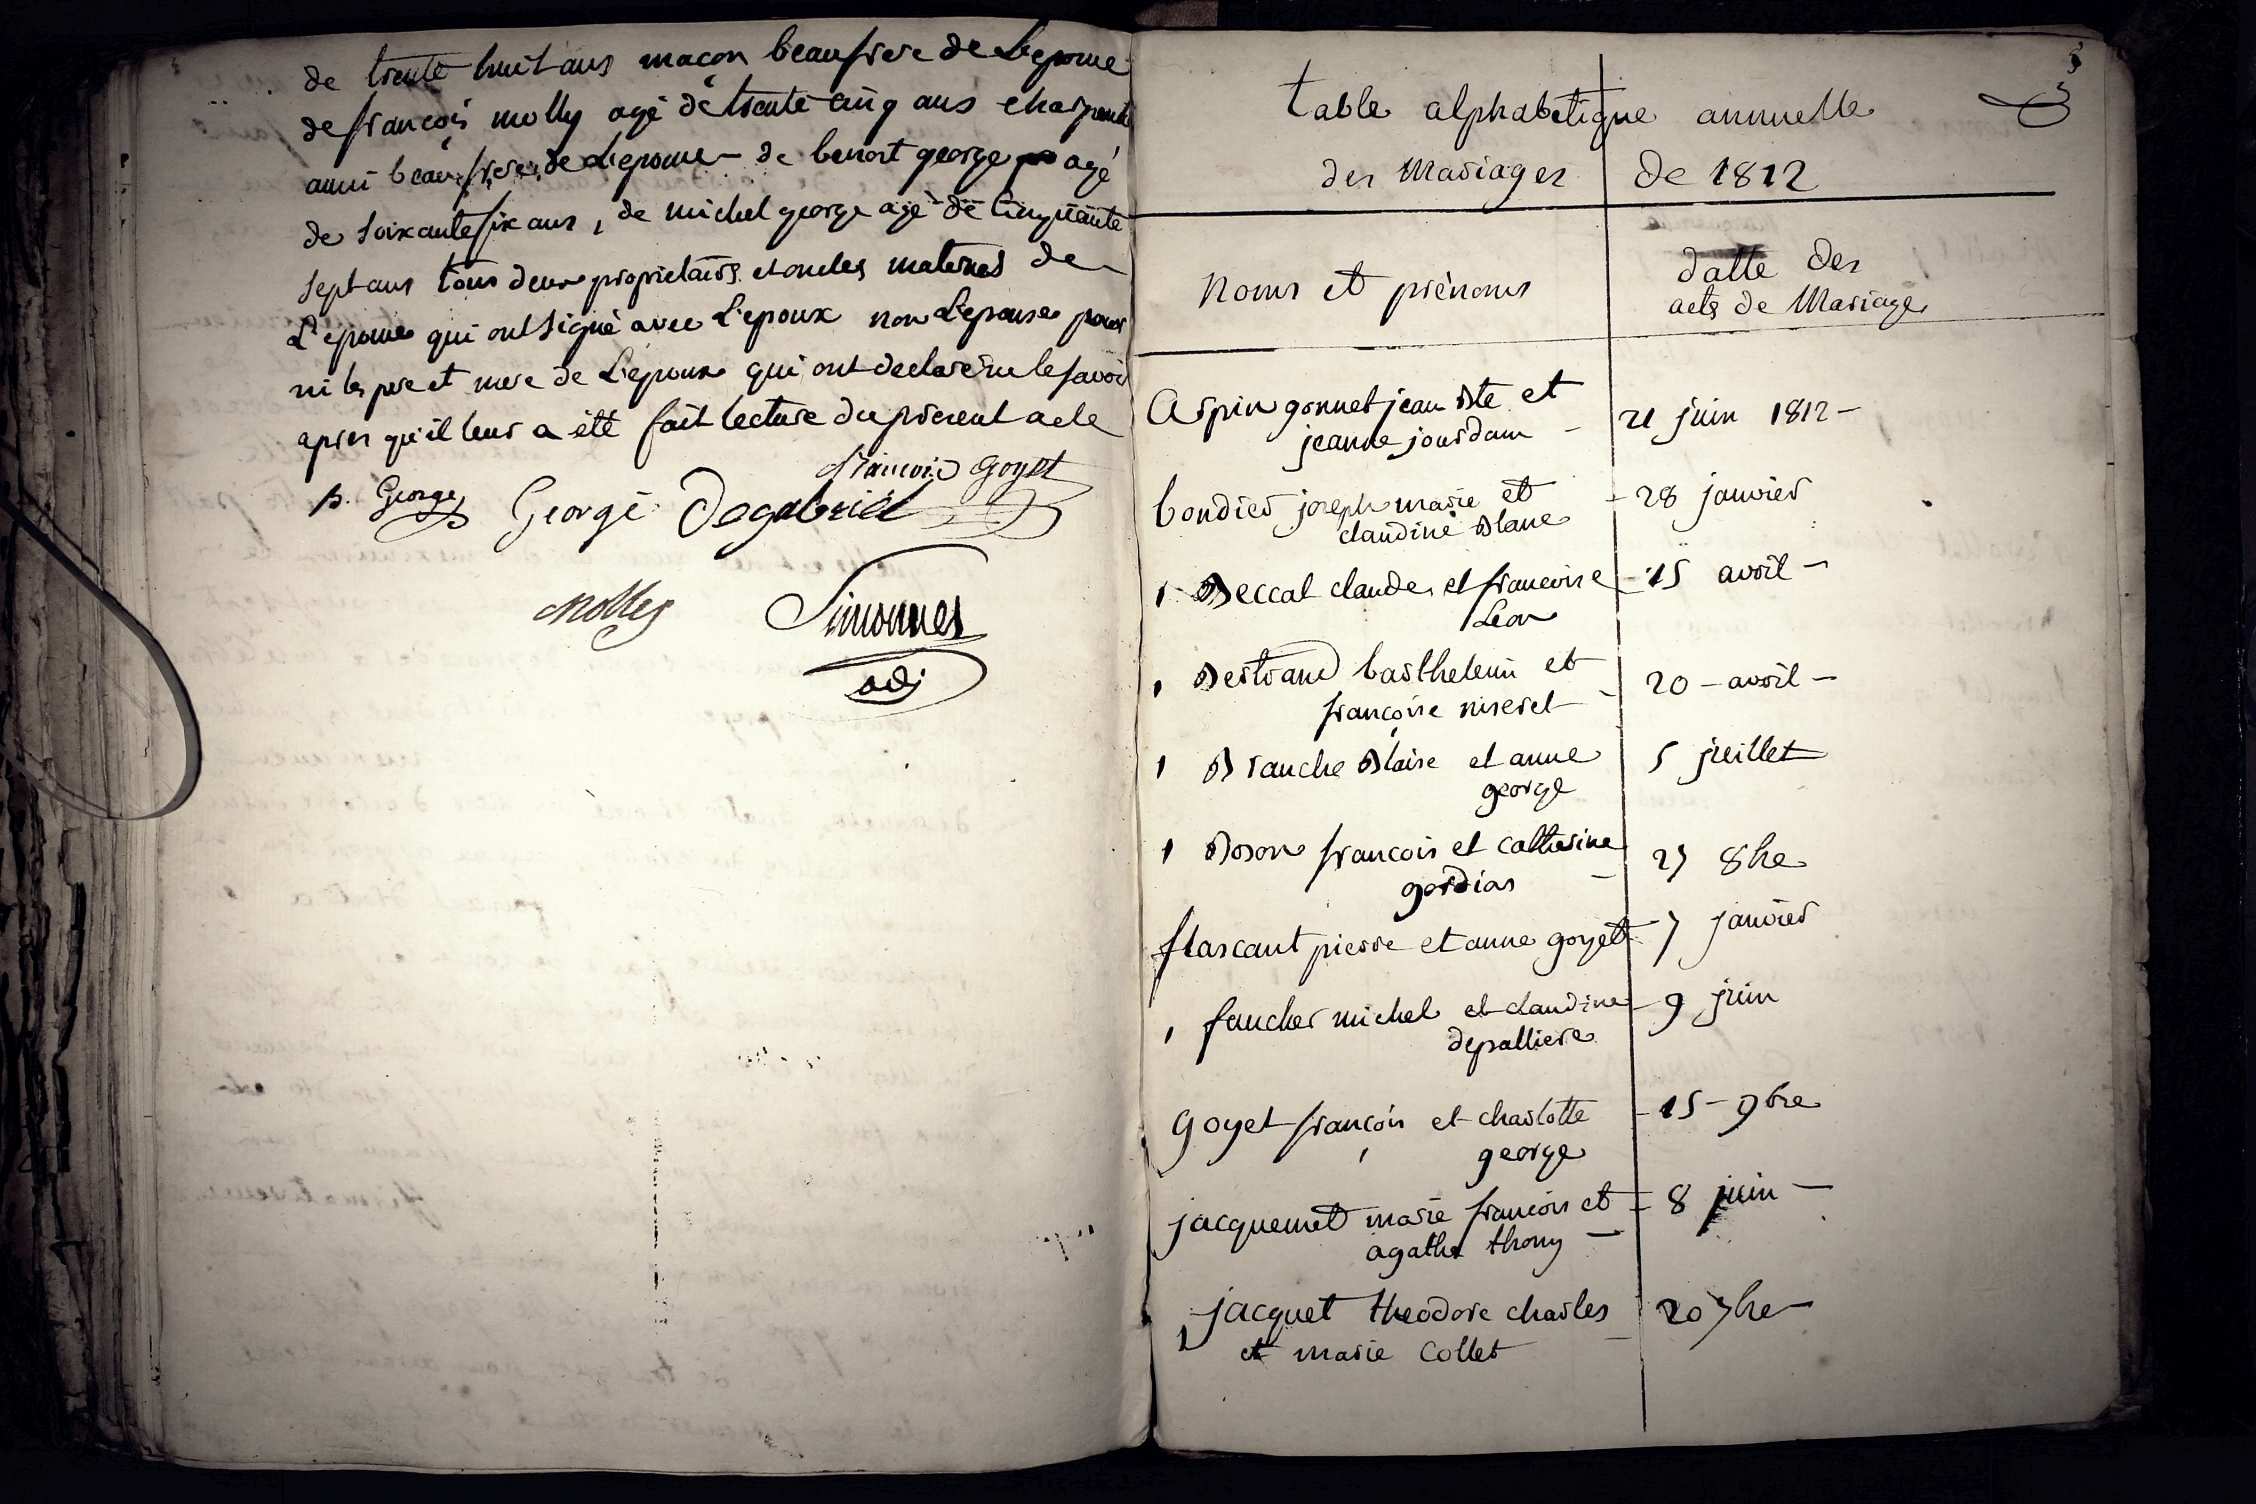 de trente huit ans maçon beaufrere de L'epouse
de françois molly agé de trente cinq ans charpentier
aussi beaufrere de L'epouse de benoit george agé
de soixante six ans, de michel george agé de Cinquante
sept ans tous deux proprietaires et oncles maternels de
L'epouse qui ont signé avec L'epoux non L'epouse
ni les pere et mere de L'epoux qui ont declaré ne le savoir
apres qu'il leur a été fait lecture du present acte
françois Goyet
b. George George Degabriel
Molley Simonnet
adj
table alphabetique annuelle
des Mariages de 1812
Noms et prénoms
datte des
acts de Mariage
Arpin gonnet jean Bte et
jeanne jourdain - 21 juin 1812 -
bondier joseph marie et
claudine Blanc - 28 janvier
Beccat claude et francoise - 15 avril -
Leon
Bertrand barthelemi et
françoise miseret - 20 - avril -
Branche Blaise et anne 5 juillet
george
Boson francois et catherine
gordias - 27 8bre
flascaut pierre et anne goyet 7 janvier
faucher michel et claudine - 9 juin
depalliere
Goyet françois et charlotte - 15 - 9bre
george
jacquemet marie francois et - 8 juin -
agathe thomy -
jacquet theodore charles
et marie Collet - 20 7bre -